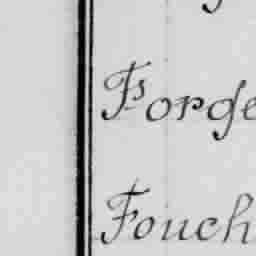 Forge
Fouch